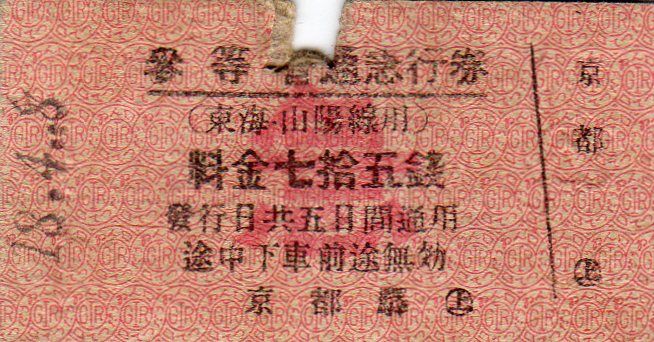 參等 普通急行券
（東海・山陽線用）
料金七拾五錢
發行日共五日間通用
途中下車前途無効
京都驛 ㊤
京都
㊤
18.4.-8